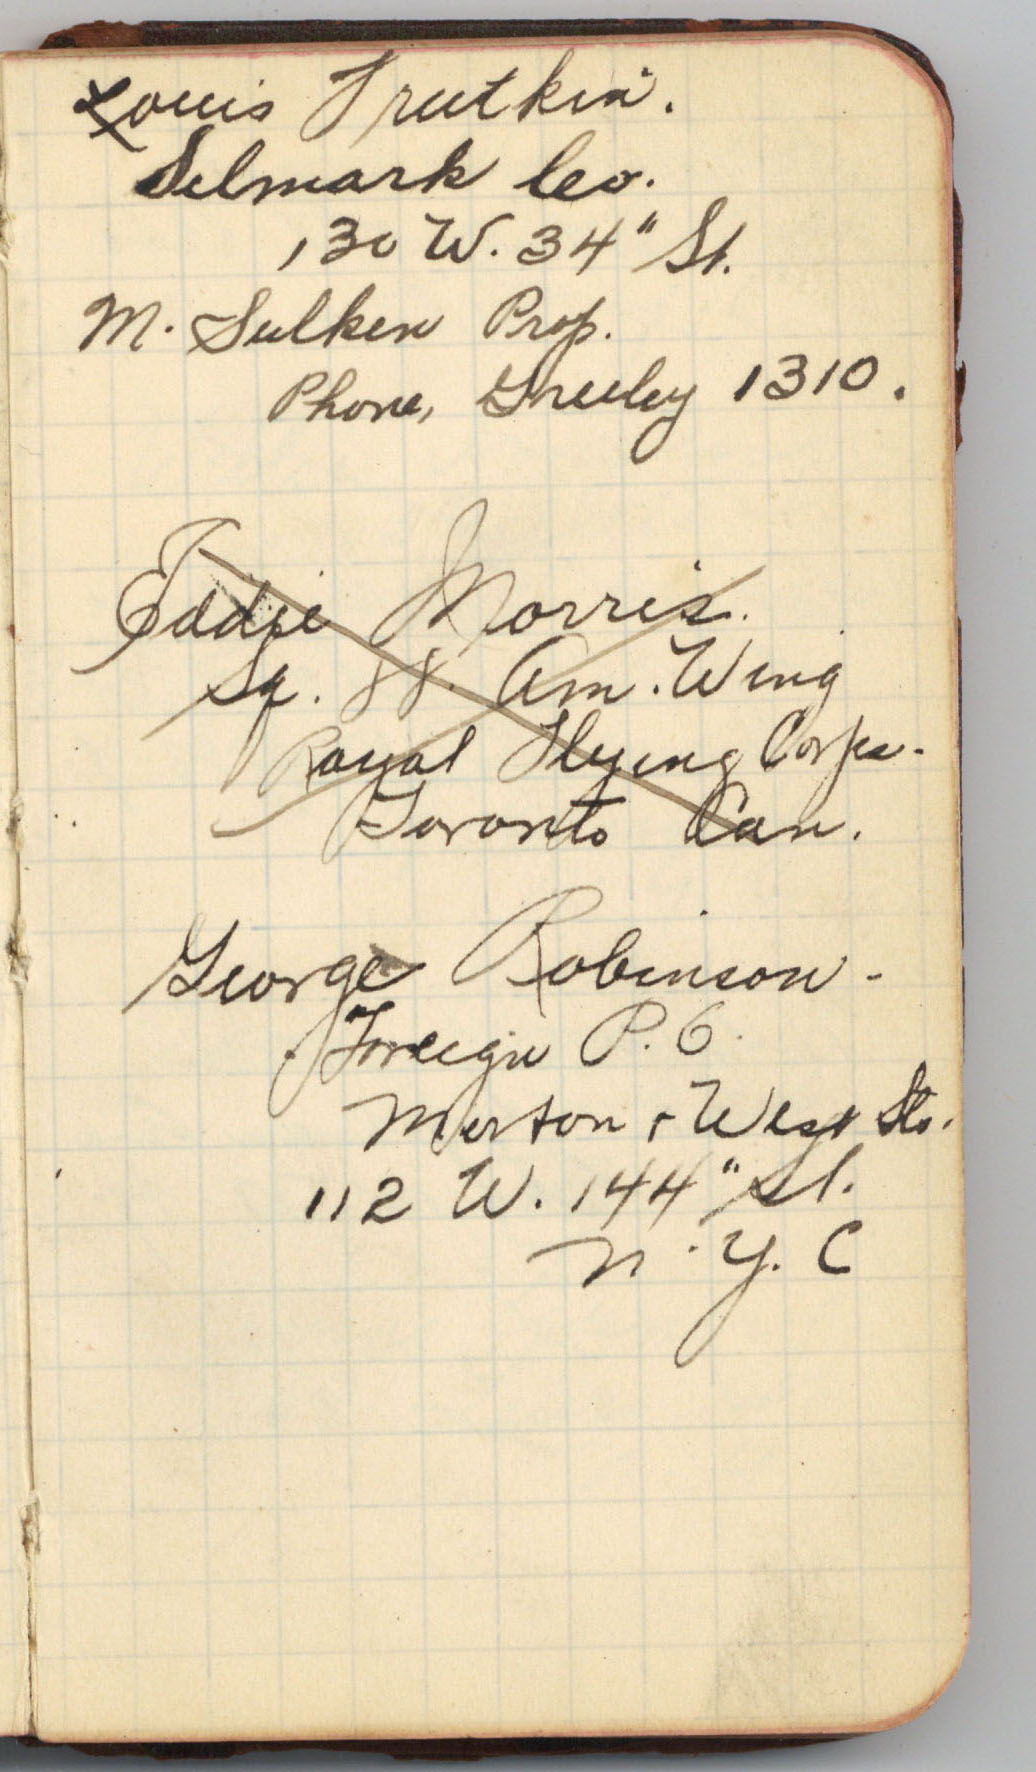 Louis Frutkin.
Selmark Co.
130 W. 34" St.
M. Sulken Prop.
Phone, Greeley 1310.
Eddie Morris.
Sq. 88. Am. Wing
Royal Flying Corps.
Toronto Can.
George Robinson.
Foreign P. O.
Morton + West Sts.
112 W. 144" St.
N. Y. C